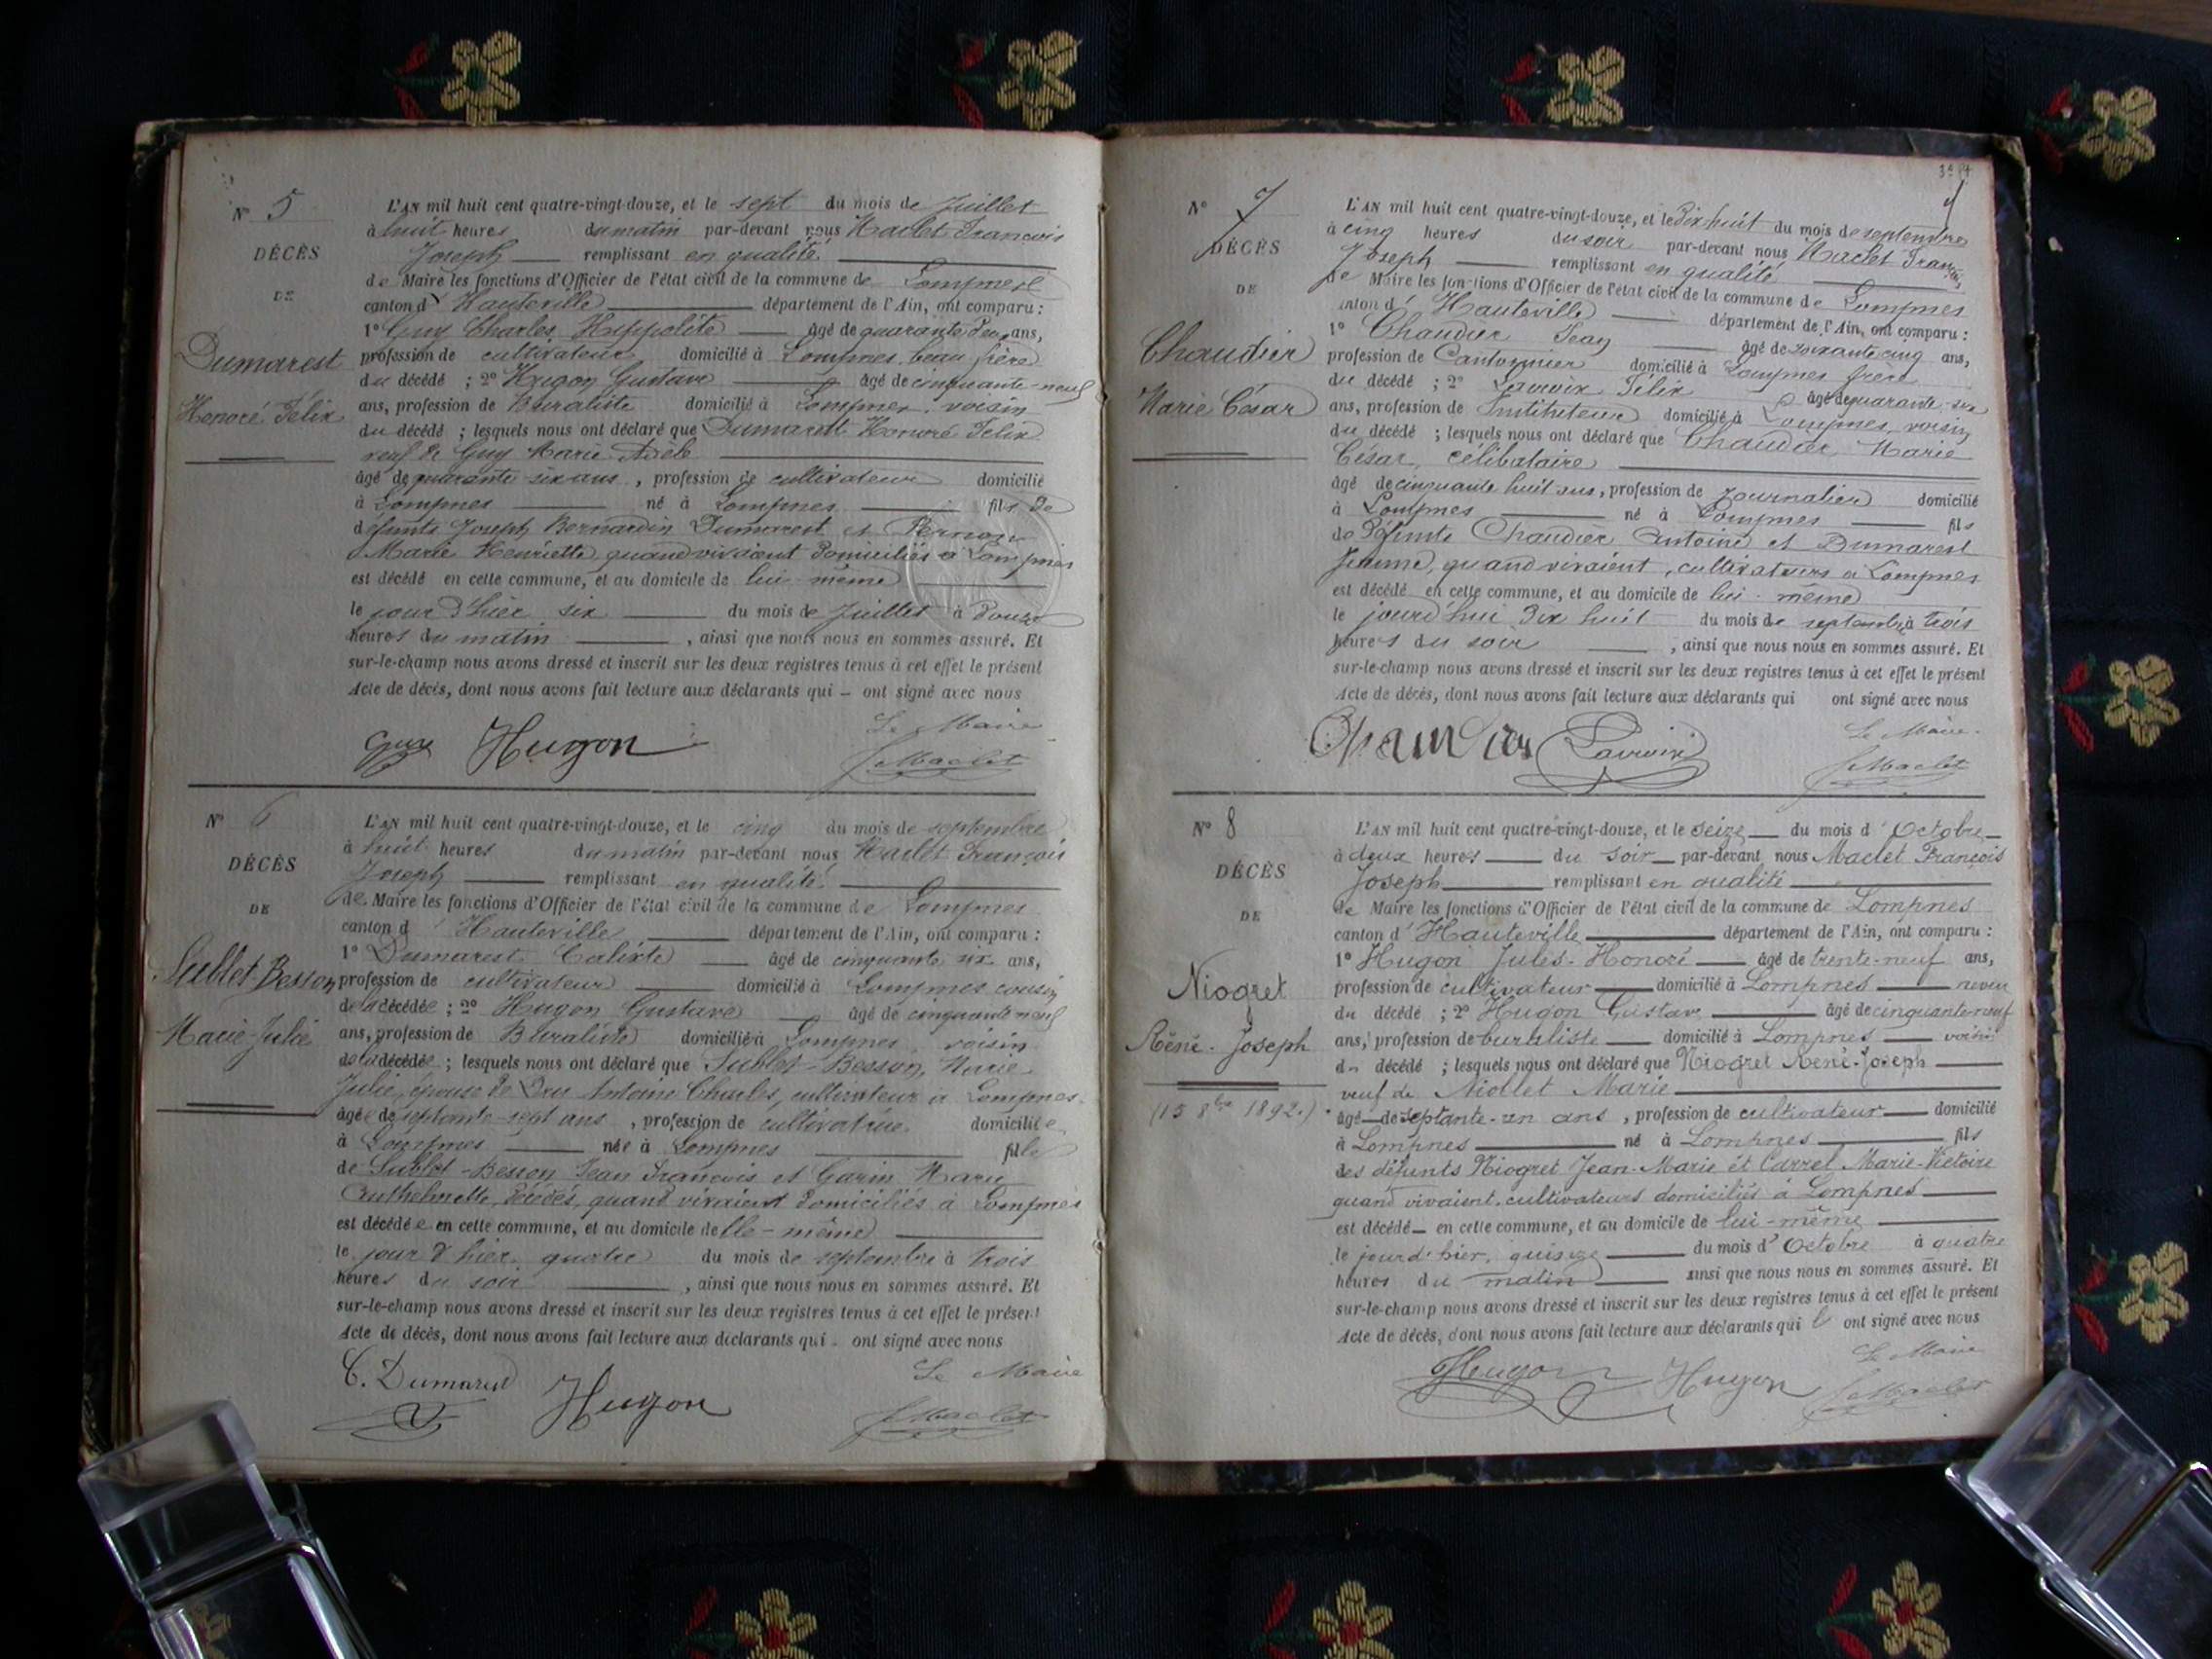 N° 5
DÉCÈS
DE
Dumarest
Honoré Félix
L'AN mil huit cent quatre-vingt-douze, et le sept du mois de Juillet
à huit heures du matin par-devant nous Maclet François
Joseph remplissant en qualité
de Maire les fonctions d'Officier de l'état civil de la commune de Lompnes
canton d' Hauteville département de l'Ain, ont comparu :
1° Guy Charles Hippolite âgé de quarante deux ans,
profession de cultivateur domicilié à Lompnes beau frère
du décédé ; 2° Hugon Gustave âgé de cinquante-neuf
ans, profession de Buraliste domicilié à Lompnes, voisin
du décédé ; lesquels nous ont déclaré que Dumarest Honoré Félix
veuf de Guy Marie Adèle
âgé de quarante six ans, profession de cultivateur domicilié
à Lompnes né à Lompnes fils de
défunts Joseph Bernardin Dumarest et Pernon
Marie Henriette quand vivaient domiciliés à Lompnes
est décédé en cette commune, et au domicile de lui-même
le jour d'hier six du mois de Juillet à douze
heures du matin , ainsi que nous nous en sommes assuré. Et
sur-le-champ nous avons dressé et inscrit sur les deux registres tenus à cet effet le présent
Acte de décès, dont nous avons fait lecture aux déclarants qui - ont signé avec nous
Le Maire
Guy Hugon JMaclet
N° 6
DÉCÈS
DE
Sublet Besson
Marie-Julie
L'AN mil huit cent quatre-vingt-douze, et le cinq du mois de septembre
à huit heures du matin par-devant nous Maclet François
Joseph remplissant en qualité
de Maire les fonctions d'Officier de l'état civil de la commune de Lompnes
canton d' Hauteville département de l'Ain, ont comparu :
1° Dumarest Calixte âgé de cinquante six ans,
profession de cultivateur domicilié à Lompnes cousin
de la décédée ; 2° Hugon Gustave âgé de cinquante neuf
ans, profession de Buraliste domicilié à Lompnes, voisin
de la décédée ; lesquels nous ont déclaré que Sublet-Besson, Marie
Julie, épouse de Dru Antoine Charles, cultivateur à Lompnes.
âgée de septante-sept ans , profession de cultivatrice domiciliée
à Lompnes née à Lompnes fille
de Sublet-Besson Jean François et Garin Marie
Anthelmette, décédés, quand vivaient domiciliés à Lompnes
est décédée en cette commune, et au domicile delle-même
le jour d'hier quatre du mois de septembre à trois
heures du soir , ainsi que nous nous en sommes assuré. Et
sur-le-champ nous avons dressé et inscrit sur les deux registres tenus à cet effet le présent
Acte de décès, dont nous avons fait lecture aux déclarants qui - ont signé avec nous
Le Maire
C. Dumarest Hugon JMaclet
N° 7
DÉCÈS
DE
Chaudier
Marie César
L'AN mil huit cent quatre-vingt-douze, et le Dix huit du mois de septembre
à cinq heures du soir par-devant nous Maclet François
Joseph remplissant en qualité
de Maire les fonctions d'Officier de l'état civil de la commune de Lompnes
canton d' Hauteville département de l'Ain, ont comparu :
1° Chaudier Jean âgé de soixante cinq ans,
profession de Cantonnier domicilié à Lompnes frère
du décédé ; 2° Félix âgé de quarante-six
ans, profession de Instituteur domicilié à Lompnes, voisin
du décédé ; lesquels nous ont déclaré que Chaudier Marie
César, célibataire
âgé de cinquante huit ans, profession de Journalier domicilié
à Lompnes né à Lompnes fils
de Défunts Chaudier Antoine et Dumarest
Jeanne, quand vivaient, cultivateurs à Lompnes
est décédé en cette commune, et au domicile de lui-meme
le jourd'hui dix huit du mois de septembre à trois
heures du soir , ainsi que nous nous en sommes assuré. Et
sur-le-champ nous avons dressé et inscrit sur les deux registres tenus à cet effet le présent
Acte de décès, dont nous avons fait lecture aux déclarants qui ont signé avec nous
Le Maire.
Chaudier JMaclet
N° 8
DÉCÈS
DE
Niogret
Réné-Joseph
(15 8bre 1892.)
L'AN mil huit cent quatre-vingt-douze, et le seize du mois d' Octobre
à deux heures du soir par-devant nous Maclet François
Joseph remplissant en qualité
de Maire les fonctions d'Officier de l'état civil de la commune de Lompnes
canton d' Hauteville département de l'Ain, ont comparu :
1° Hugon Jules-Honoré âgé de trente-neuf ans,
profession de cultivateur domicilié à Lompnes neveu
du décédé ; 2° Hugon Gustave âgé de cinquante-neuf
ans, profession de buraliste domicilié à Lompnes voisin
du décédé ; lesquels nous ont déclaré que Niogret Réné-Joseph
veuf de Niollet Marie
âgé de septante-un ans , profession de cultivateur domicilié
à Lompnes né à Lompnes fils
des défunts Niogret Jean-Marie et Carrel Marie-Victoire
quand vivaient cultivateurs domiciliés à Lompnes
est décédé en cette commune, et au domicile de lui-même
le jour d'hier, quinze du mois d' Octobre à quatre
heures du matin ainsi que nous nous en sommes assuré. Et
sur-le-champ nous avons dressé et inscrit sur les deux registres tenus à cet effet le présent
Acte de décès, dont nous avons fait lecture aux déclarants qui ont signé avec nous
Le Maire
JHugon Hugon JMaclet